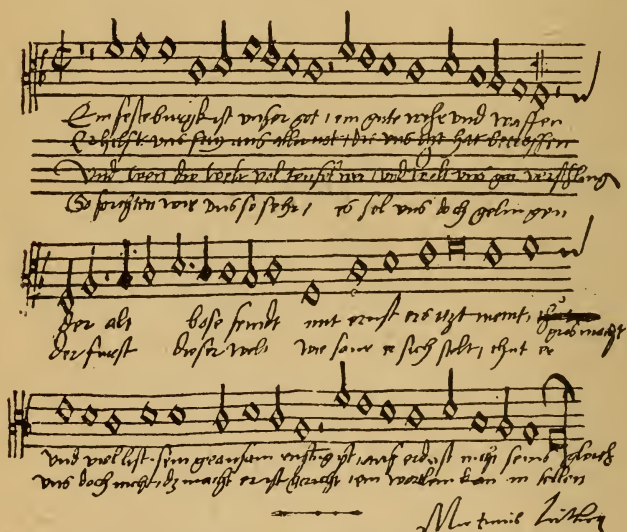 Ein feste burgk ist unser got, ein gute wehr und waffen
Er hilfft uns frey aus aller not, die uns itzt hat betroffen
Und wen die welt vol teuffel wer, und wolt uns gar verschling
So forchten wir uns so sehr, es sol uns doch gelingen
der alt bose feindt mit ernst ers itzt meint, gros macht
der furst dieser welt wie saur er sich stelt, thut er
und viel list sein grausam rustug ist, auf erdn ist nicht seins gleich
uns doch nicht, dz macht er ist gericht, ein wortlein kan in fellen
Martinus Luther